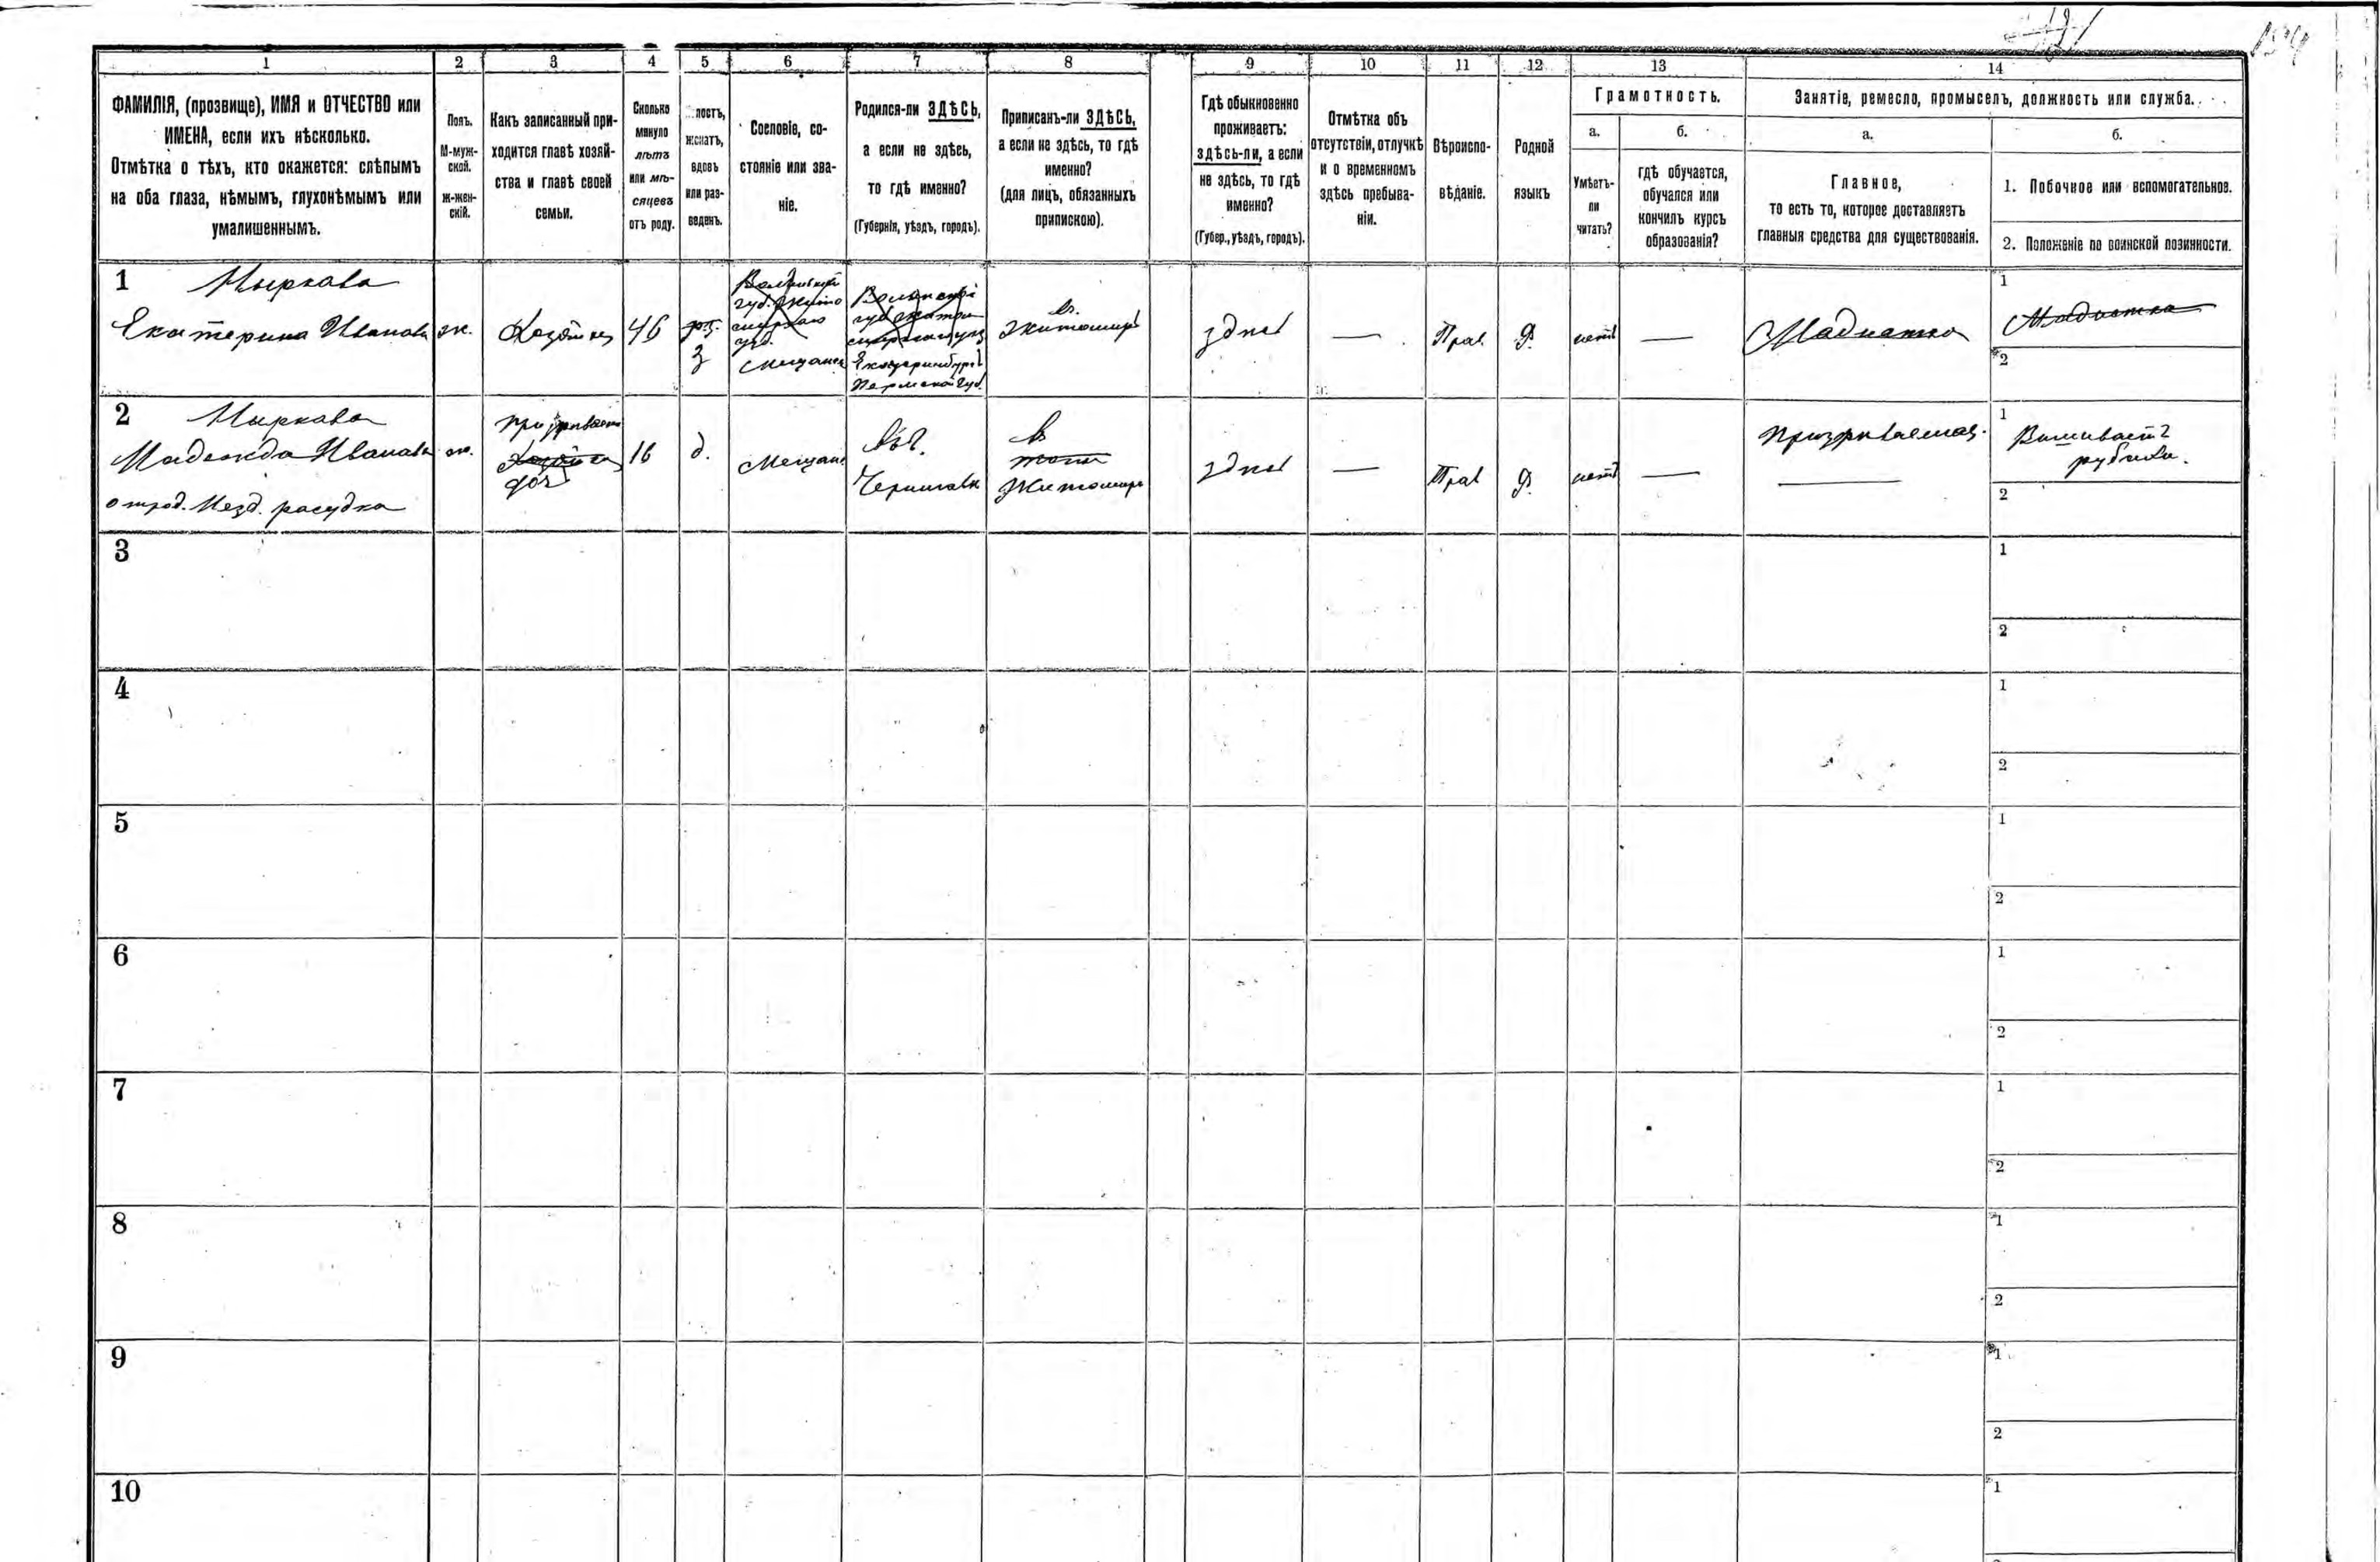 154
1
2
3
4
5
6
7
8
9
10
11
12
13
14
ФАМИЛІЯ, (прозвище), ИМЯ и ОТЧЕСТВО или
ИМЕНА, если ихъ нѣсколько.
Отмѣтка о тѣхъ, кто окажется: слѣпымъ
на оба глаза, нѣмымъ, глухонѣмымъ или
умалишеннымъ.
Полъ.
М-муж-
ской.
ж-жен-
скій.
Какъ записанный при-
ходится главѣ хозяй-
ства и главѣ своей
семьи.
Сколько
минуло
лѣтъ
или мѣ-
сяцевъ
отъ роду.
лостъ,
женатъ,
вдовъ
или раз-
веденъ.
Сословіе, со-
стояніе или зва-
ніе.
Родился-ли ЗДѢСЬ,
а если не здѣсь,
то гдѣ именно?
(Губернія, уѣздъ, городъ).
Приписанъ-ли ЗДѢСЬ,
а если не здѣсь, то гдѣ
именно?
(для лицъ, обязанныхъ
припискою).
Гдѣ обыкновенно
проживаетъ:
здѣсь-ли, а если
не здѣсь, то гдѣ
именно?
(Губер., уѣздъ, городъ).
Отмѣтка объ
отсутствіи, отлучкѣ
и о временномъ
здѣсь пребыва-
ніи.
Вѣроиспо-
вѣданіе.
Родной
языкъ
Грамотность.
а.
Умѣетъ-
ли
читать?
б.
гдѣ обучается,
обучался или
кончилъ курсъ
образованія?
Занятіе, ремесло, промыселъ, должность или служба.
а.
Главное,
то есть то, которое доставляетъ
главныя средства для существованія.
б.
1. Побочное или вспомогательное.
2. Положеніе по воинской повинности.
1
Екатерина Иванова
ж.
Хозяйка
46
з
Мещанка
Екатеринбургъ
Пермской губ.
в.
Житомиръ
здѣсь
—
Прав.
Р.
нетъ
—
1
2
2
Надежда Иванова
расудка
ж.
16
д.
Мещан.
в
Житомиръ
здѣсь
—
Прав
Р.
нетъ
—
Призрѣваемая.
1 Вышиваетъ
рубахи.
2
3
1
2
4
1
2
5
1
2
6
1
2
7
1
2
8
1
2
9
1
2
10
1